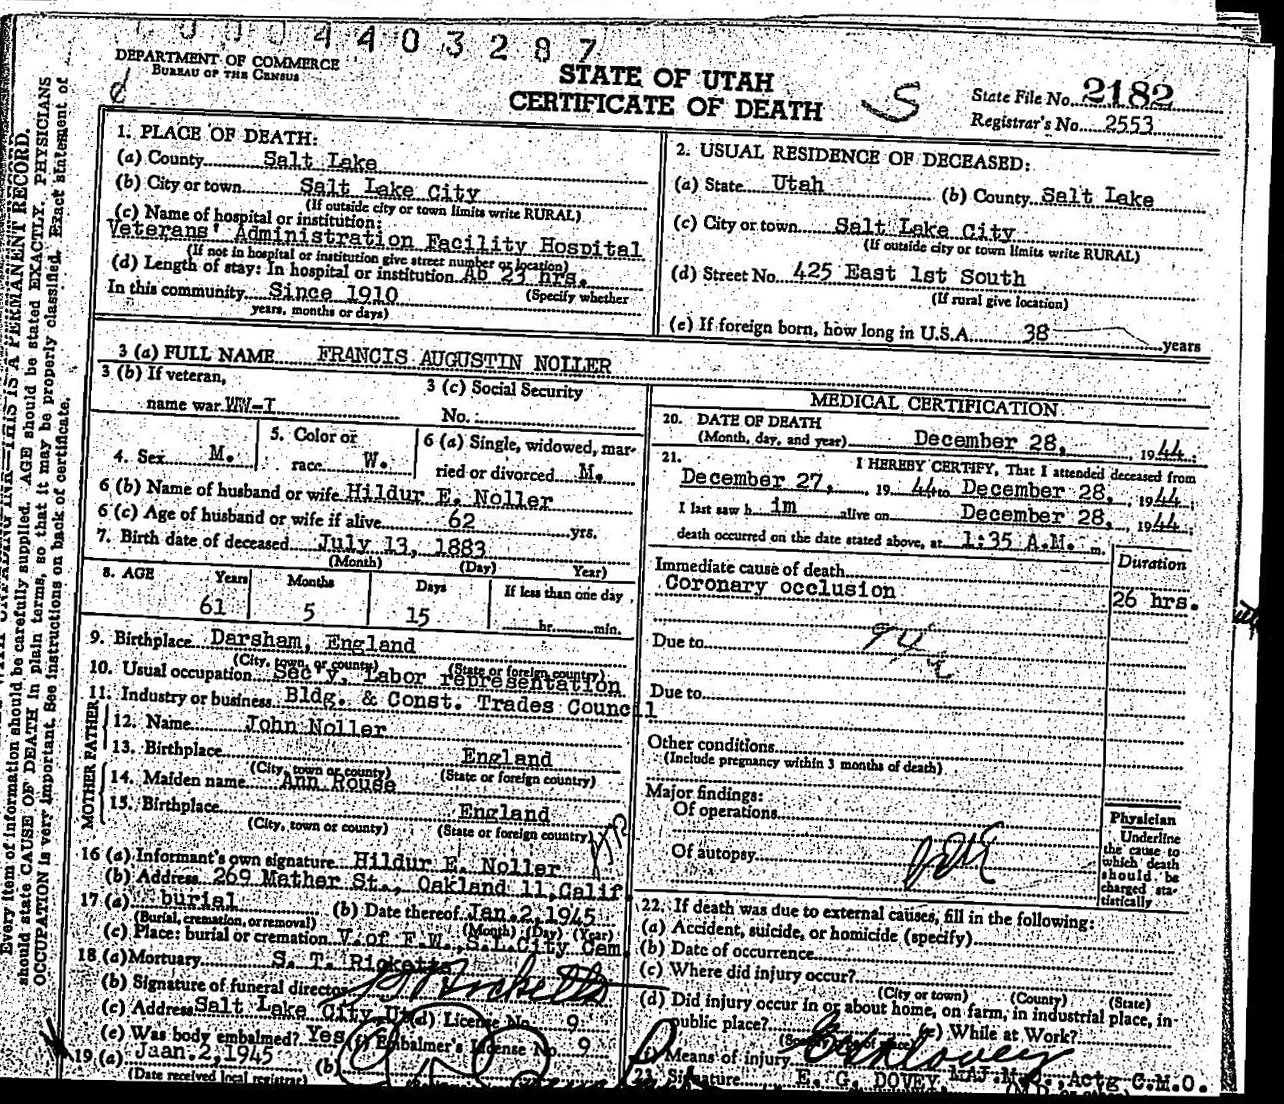 0004403287
DEPARTMENT OF COMMERCE
BUREAU OF THE CENSUS
STATE OF UTAH
CERTIFICATE OF DEATH
S
State File No. 2182
Registrar's No. 2553
Every item of information should be carefully supplied. AGE should be stated EXACTLY. PHYSICIANS
should state CAUSE OF DEATH in plain terms, so that it may be properly classified. Exact statement of
OCCUPATION is very important. See instructions on back of certificate.
THIS IS A PERMANENT RECORD.
1. PLACE OF DEATH:
(a) County Salt Lake
(b) City or town Salt Lake City
(If outside city or town limits write RURAL)
(c) Name of hospital or institution:
Veterans' Administration Facility Hospital
(If not in hospital or institution give street number or location)
(d) Length of stay: In hospital or institution Ab 23 hrs.
In this community Since 1910 (Specify whether
years, months or days)
2. USUAL RESIDENCE OF DECEASED:
(a) State Utah (b) County Salt Lake
(c) City or town Salt Lake City
(If outside city or town limits write RURAL)
(d) Street No. 425 East 1st South
(If rural give location)
(e) If foreign born, how long in U.S.A. 38 years
3 (a) FULL NAME FRANCIS AUGUSTIN NOLLER
3 (b) If veteran,
name war WW-I
3 (c) Social Security
No.
4. Sex M.
5. Color or
race W.
6 (a) Single, widowed, mar-
ried or divorced M.
6 (b) Name of husband or wife Hildur E. Noller
6 (c) Age of husband or wife if alive 62 yrs.
7. Birth date of deceased July 13, 1883
(Month) (Day) Year)
8. AGE Years Months Days If less than one day
61 5 15 hr. min.
9. Birthplace Darsham, England
(City, town, or county) (State or foreign country)
10. Usual occupation Sec'y, Labor representation
11. Industry or business Bldg. & Const. Trades Council
FATHER
12. Name John Noller
13. Birthplace England
(City, town or county) (State or foreign country)
MOTHER
14. Maiden name Ann Rouse
15. Birthplace England
(City, town or county) (State or foreign country)
16 (a) Informant's own signature Hildur E. Noller
(b) Address 269 Mather St., Oakland 11, Calif.
17 (a) burial (b) Date thereof Jan. 2, 1945
(Burial, cremation, or removal) (Month) (Day) (Year)
(c) Place: burial or cremation V. of F.W., S.L.City Cem.
18 (a) Mortuary S. T. Ricketts
(b) Signature of funeral director Ricketts
(c) Address Salt Lake City, Ut (d) License No. 9
(e) Was body embalmed? Yes (f) Embalmer's License No. 9
19 (a) Jaan. 2, 1945 (b)
(Date received local registrar)
MEDICAL CERTIFICATION
20. DATE OF DEATH
(Month, day, and year) December 28, 1944.
21. I HEREBY CERTIFY, That I attended deceased from
December 27, 1944 to December 28, 1944;
I last saw h im alive on December 28, 1944;
death occurred on the date stated above, at 1:35 A.M. m.
Duration
Immediate cause of death
Coronary occlusion 26 hrs.
Due to
Due to
Other conditions
(Include pregnancy within 3 months of death)
Major findings:
Of operations
Of autopsy
Physician
Underline
the cause to
which death
should be
charged sta-
tistically
22. If death was due to external causes, fill in the following:
(a) Accident, suicide, or homicide (specify)
(b) Date of occurrence
(c) Where did injury occur?
(City or town) (County) (State)
(d) Did injury occur in or about home, on farm, in industrial place, in
public place? (e) While at Work?
(f) Means of injury
23. Signature E. G. DOVEY, MAJ. M.C., Actg C.M.O.